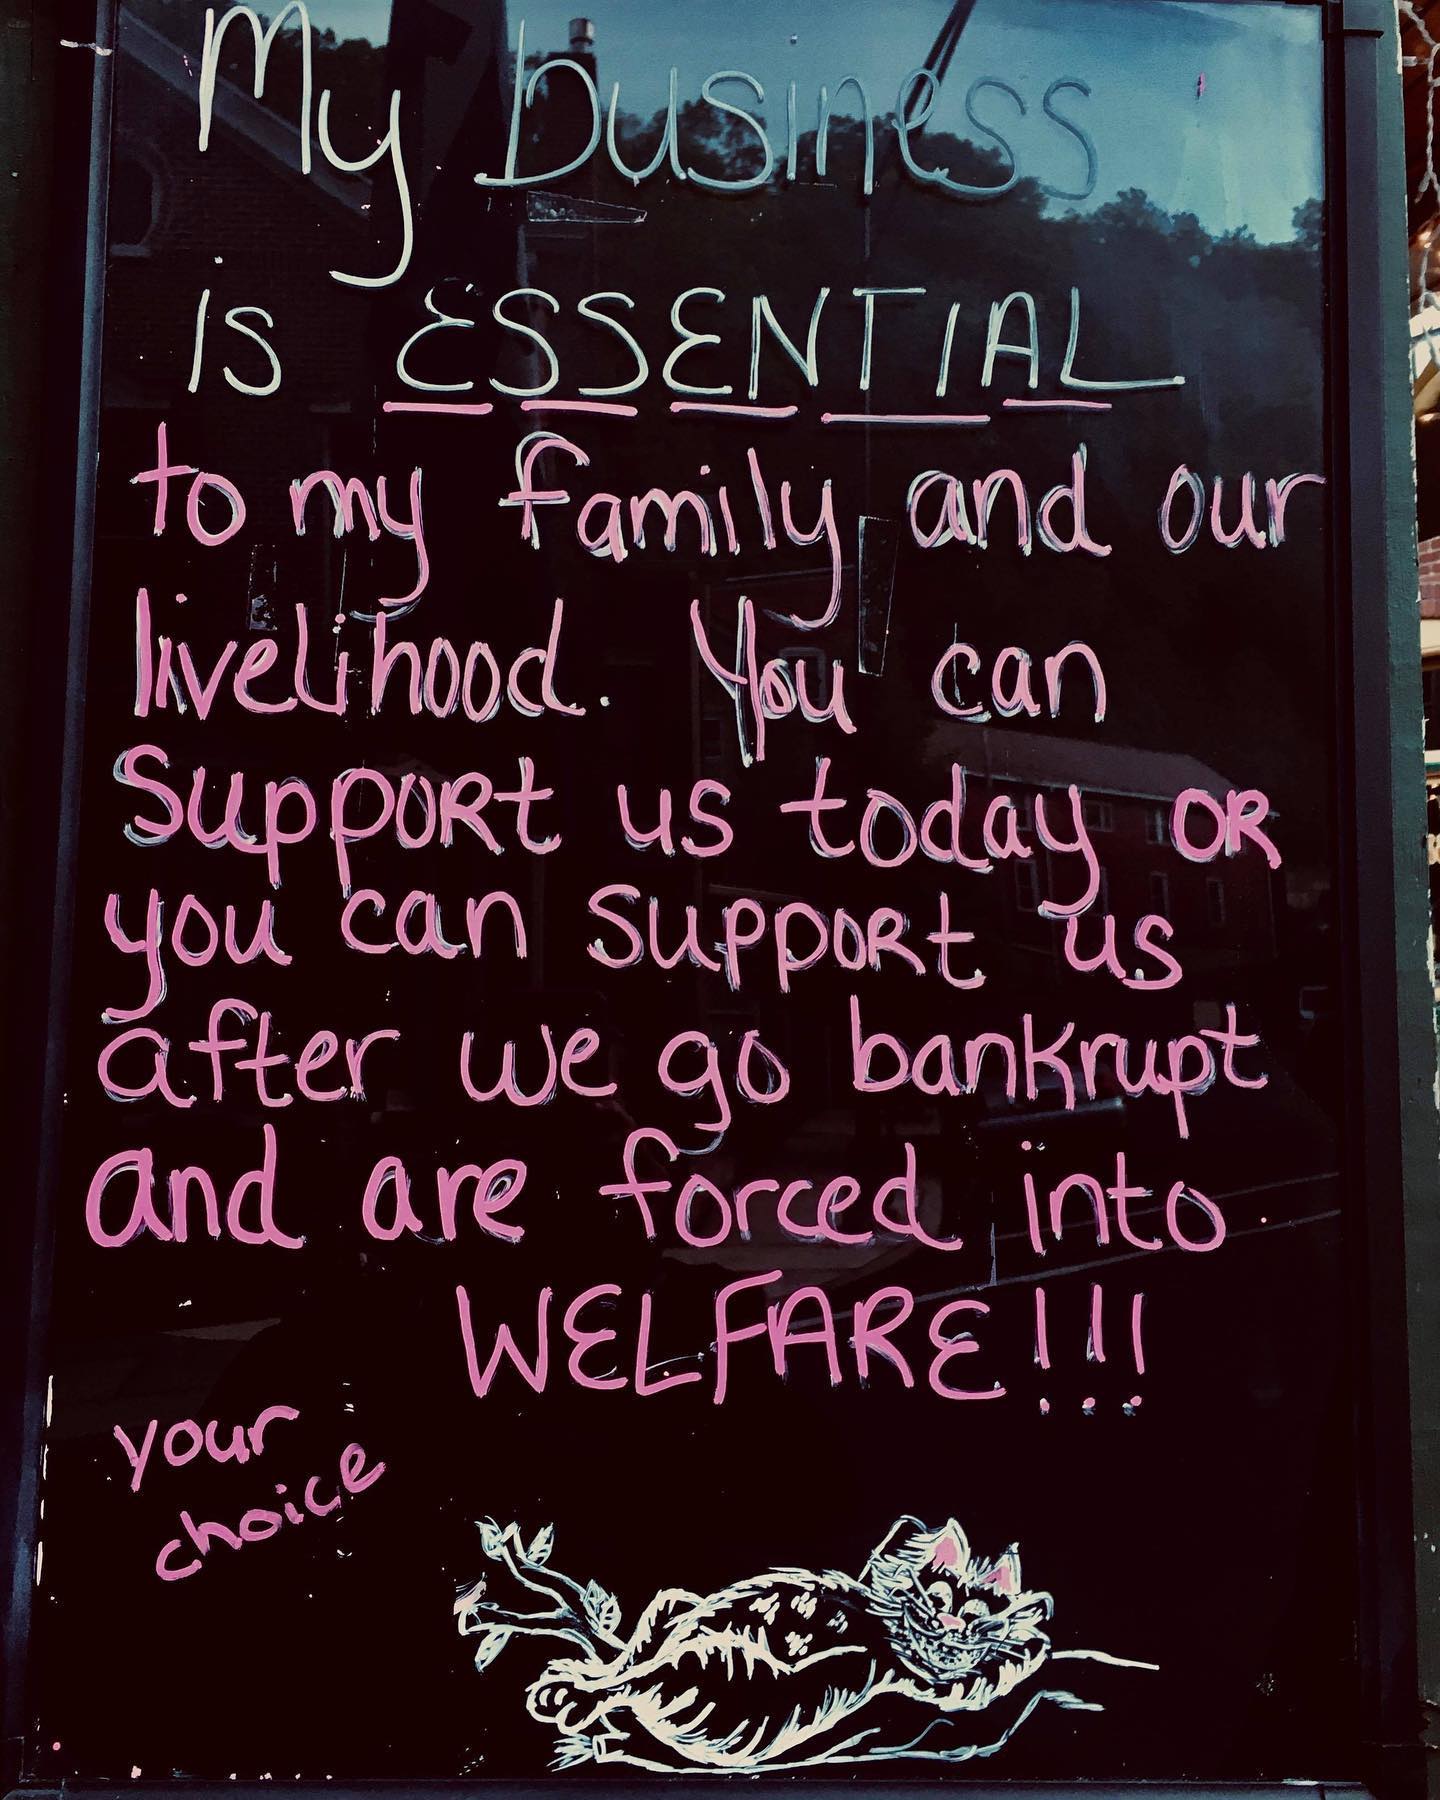 My business
is ESSENTIAL
to my family and our
livelihood. You can
Support us today OR
you can support us
after we go bankrupt
and are forced into
WELFARE!!!
your
choice